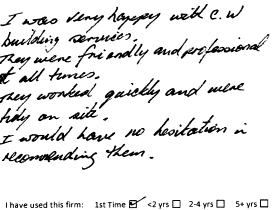 I was very happy with C.W
building services.
They were friendly and professional
at all times.
They worked quickly and were
tidy on site.
I would have no hesitation in
recommending them.
I have used this firm: 1st Time ☑ <2 yrs ☐ 2-4 yrs ☐ 5+ yrs ☐